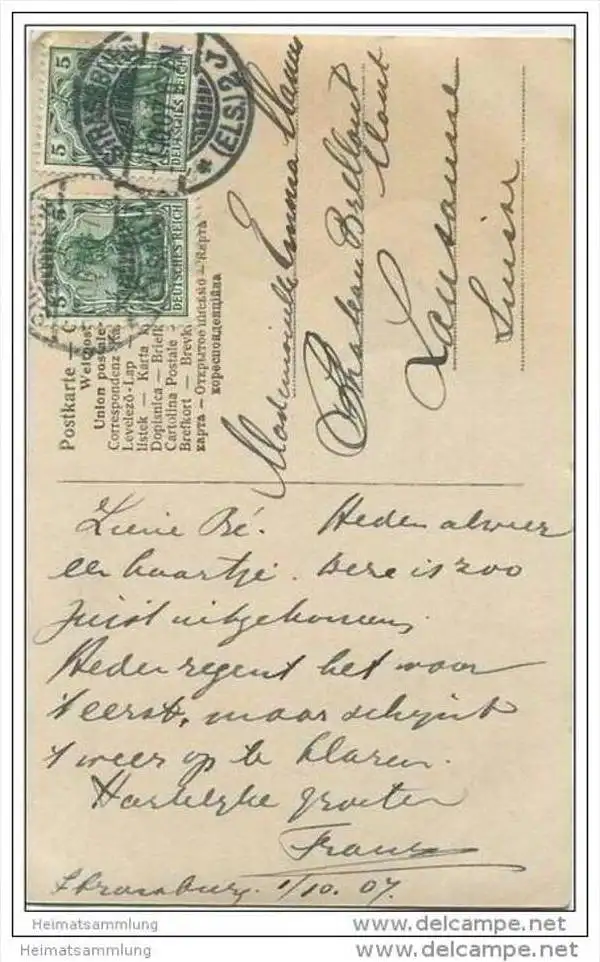 STRASSBURG
(ELS.) 2 J
5 DEUTSCHES REICH
5 DEUTSCHES REICH
Postkarte —
Weltpost
Union postale
Correspondenz
Levelező-Lap —
listek — Karta
Dopisnica — Briefk
Cartolina Postale
Brefkort — Brevk
карта — Открытое письмо — Карта
кореспонденційна
Mademoiselle Emma
Lausanne
Suisse
Lieve Bé. Heden alweer
een kaartje. Deze is zoo
juist uitgekomen
Heden regent het voor
't eerst, maar schijnt
't weer op te klaren.
Hartelyke groeten
Frans
Strassburg. 1/10.07.
Heimatsammlung
Heimatsammlung
www.delcampe.net
www.delcampe.net